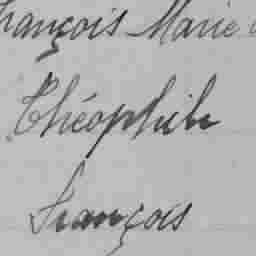 François Marie
Théophile
François